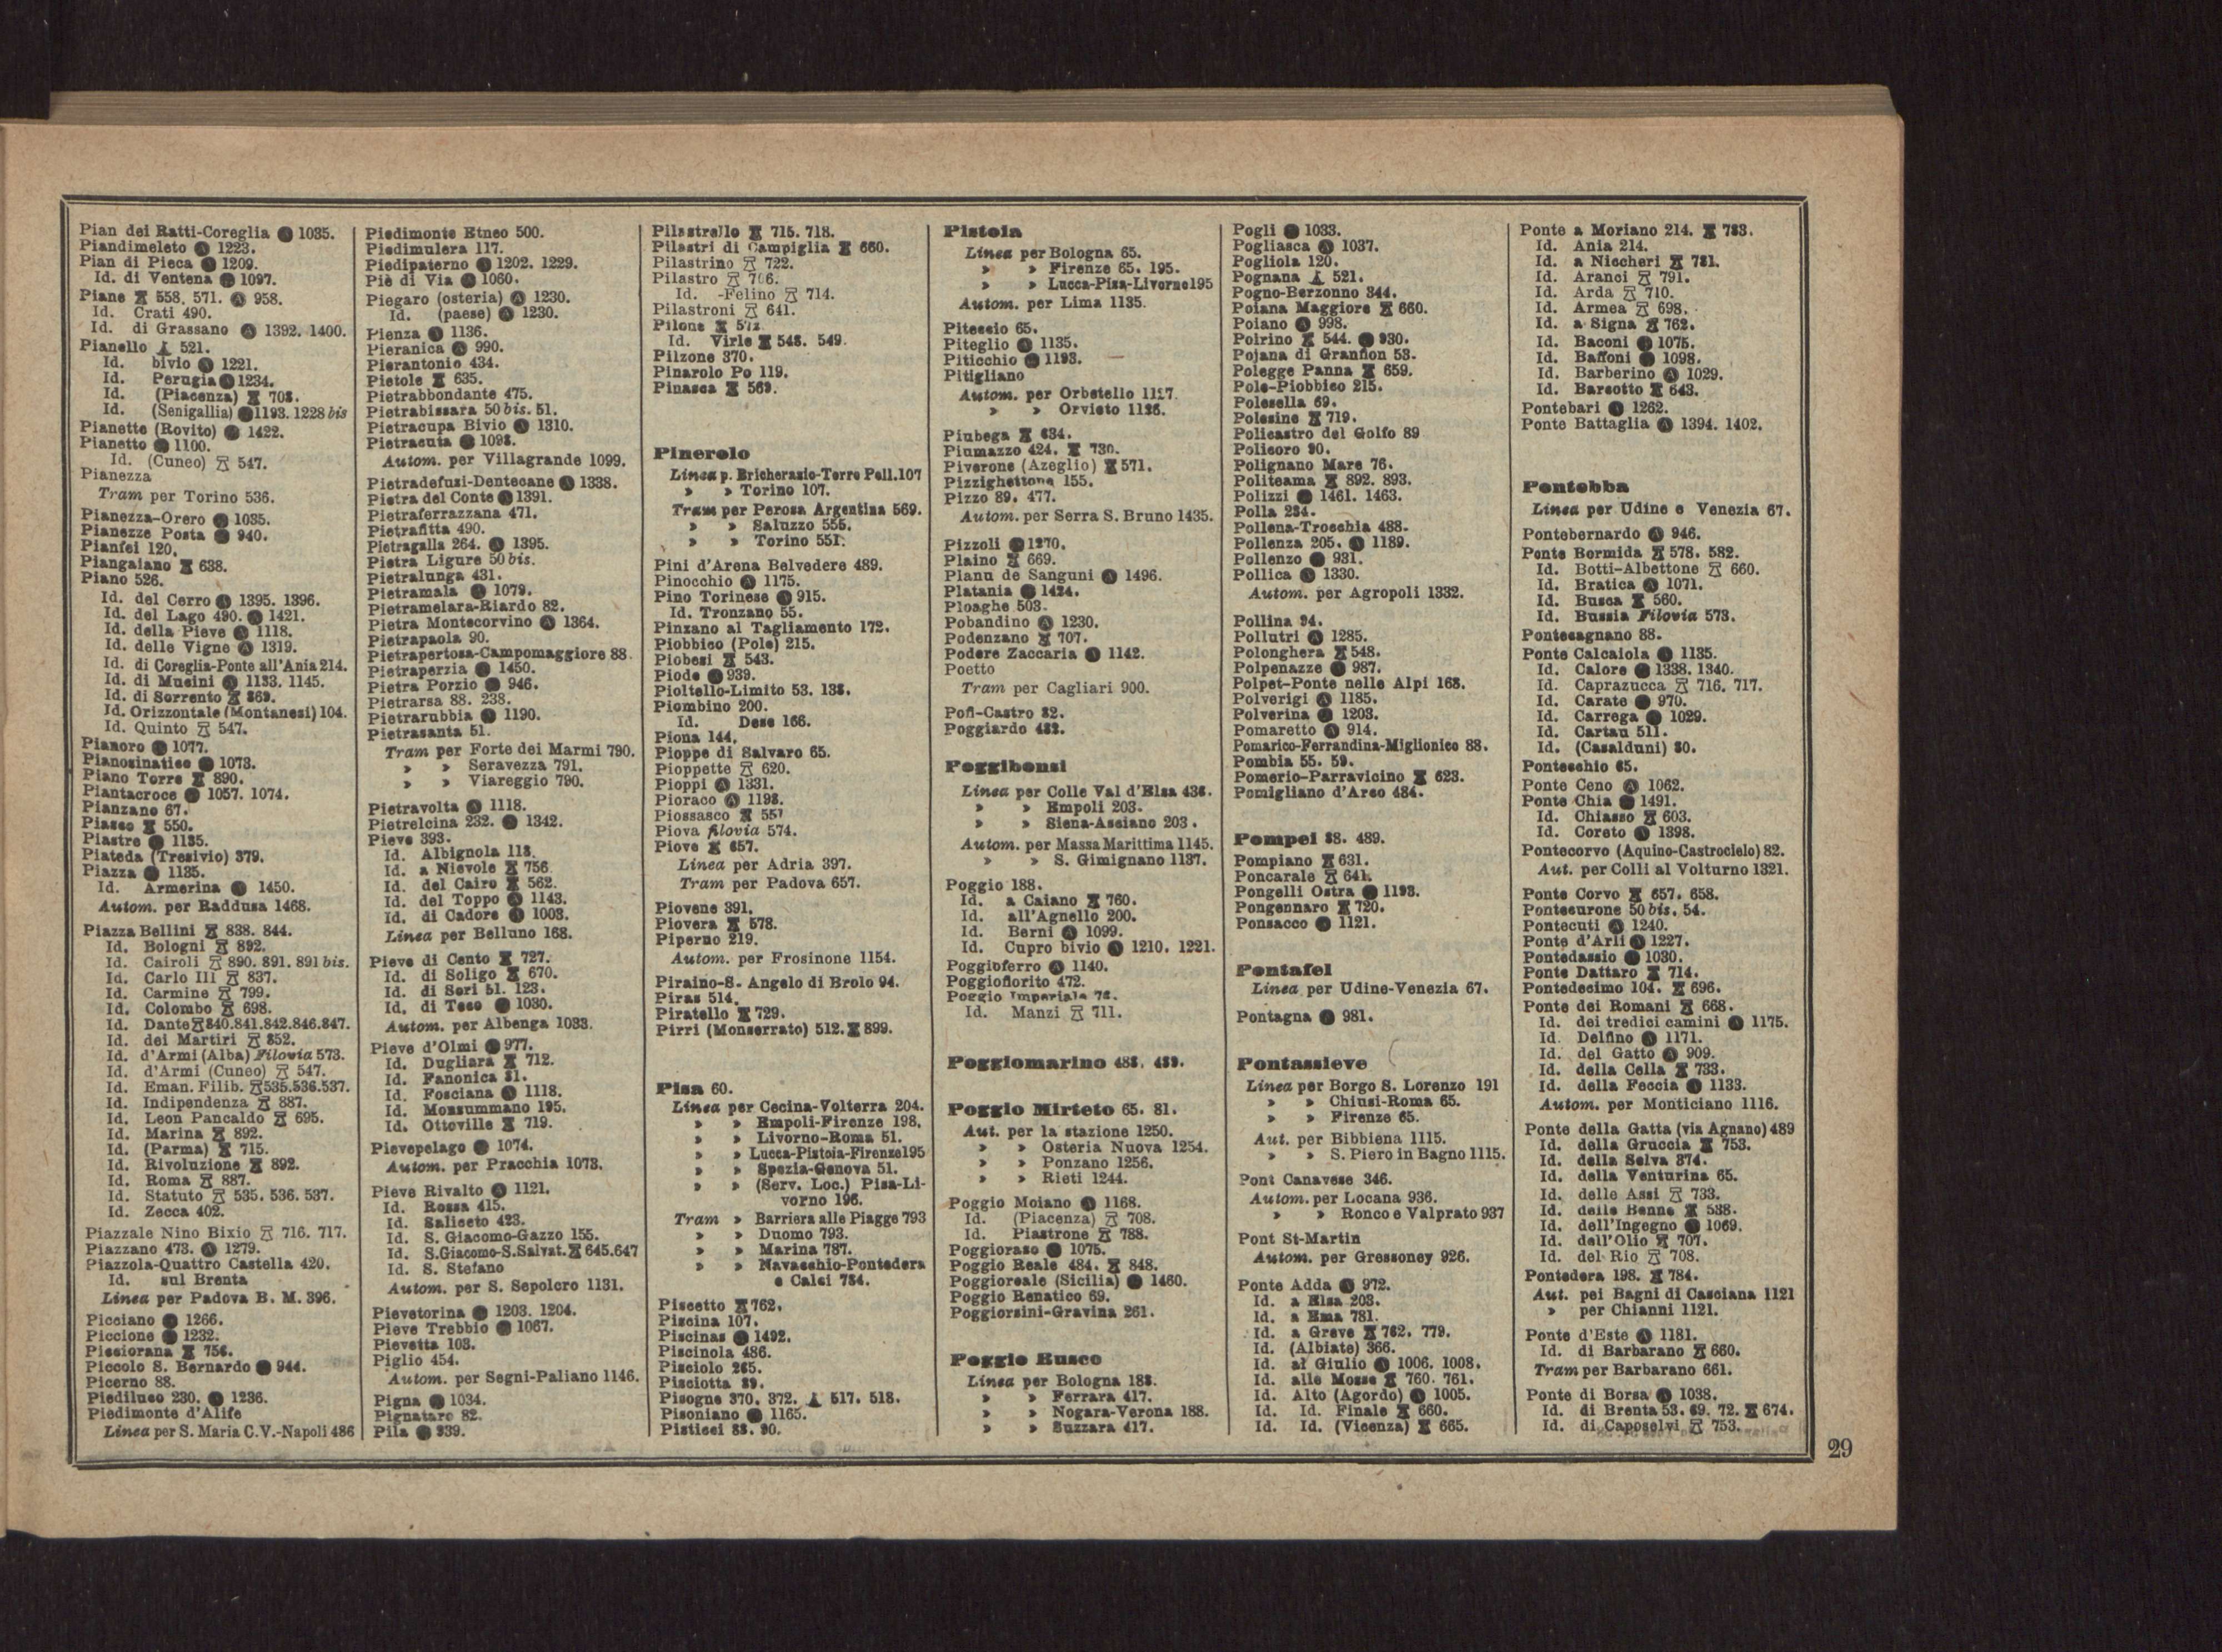 Pian dei Ratti-Coreglia Ⓐ 1035.
Piandimeleto Ⓐ 1223.
Pian di Pieca Ⓐ 1209.
Id. di Ventena Ⓐ 1097.
Piane 558. 571. Ⓐ 958.
Id. Crati 490.
Id. di Grassano Ⓐ 1392. 1400.
Pianello 521.
Id. bivio Ⓐ 1221.
Id. Perugia Ⓐ 1234.
Id. (Piacenza) 708.
Id. (Senigallia) Ⓐ 1193. 1228 bis
Pianette (Rovito) Ⓐ 1422.
Pianetto Ⓐ 1100.
Id. (Cuneo) 547.
Pianezza
Tram per Torino 536.
Pianezza-Orero Ⓐ 1035.
Pianezze Posta Ⓐ 940.
Pianfei 120.
Piangaiano 638.
Piano 526.
Id. del Cerro Ⓐ 1395. 1396.
Id. del Lago 490. Ⓐ 1421.
Id. della Pieve Ⓐ 1118.
Id. delle Vigne Ⓐ 1319.
Id. di Coreglia-Ponte all'Ania 214.
Id. di Mucini Ⓐ 1133. 1145.
Id. di Sorrento 869.
Id. Orizzontale (Montanesi) 104.
Id. Quinto 547.
Pianoro Ⓐ 1077.
Pianosinatico Ⓐ 1073.
Piano Torre 890.
Piantacroce Ⓐ 1057. 1074.
Pianzano 67.
Piasco 550.
Piastre Ⓐ 1135.
Piateda (Tresivio) 379.
Piazza Ⓐ 1135.
Id. Armerina Ⓐ 1450.
Autom. per Raddusa 1468.
Piazza Bellini 838. 844.
Id. Bologni 892.
Id. Cairoli 890. 891. 891 bis.
Id. Carlo III 837.
Id. Carmine 799.
Id. Colombo 698.
Id. Dante 840.841.842.846.847.
Id. dei Martiri 852.
Id. d'Armi (Alba) Filovia 573.
Id. d'Armi (Cuneo) 547.
Id. Eman. Filib. 535.536.537.
Id. Indipendenza 887.
Id. Leon Pancaldo 695.
Id. Marina 892.
Id. (Parma) 715.
Id. Rivoluzione 892.
Id. Roma 887.
Id. Statuto 535. 536. 537.
Id. Zecca 402.
Piazzale Nino Bixio 716. 717.
Piazzano 473. Ⓐ 1279.
Piazzola-Quattro Castella 420.
Id. sul Brenta
Linea per Padova B. M. 396.
Picciano Ⓐ 1266.
Piccione Ⓐ 1232.
Picciorana 756.
Piccolo S. Bernardo Ⓐ 944.
Picerno 88.
Piediluco 230. Ⓐ 1236.
Piedimonte d'Alife
Linea per S. Maria C.V.-Napoli 486
Piedimonte Etneo 500.
Piedimulera 117.
Piedipaterno Ⓐ 1202. 1229.
Piè di Via Ⓐ 1060.
Piegaro (osteria) Ⓐ 1230.
Id. (paese) Ⓐ 1230.
Pienza Ⓐ 1136.
Pieranica Ⓐ 990.
Pierantonio 434.
Pietole 635.
Pietrabbondante 475.
Pietrabissara 50 bis. 51.
Pietracupa Bivio Ⓐ 1310.
Pietracuta Ⓐ 1098.
Autom. per Villagrande 1099.
Pietradefusi-Dentecane Ⓐ 1338.
Pietra del Conte Ⓐ 1391.
Pietraferrazzana 471.
Pietrafitta 490.
Pietragalla 264. Ⓐ 1395.
Pietra Ligure 50 bis.
Pietralunga 431.
Pietramala Ⓐ 1079.
Pietramelara-Riardo 82.
Pietra Montecorvino Ⓐ 1364.
Pietrapaola 90.
Pietrapertosa-Campomaggiore 88.
Pietraperzia Ⓐ 1450.
Pietra Porzio Ⓐ 946.
Pietrarsa 88. 238.
Pietrarubbia Ⓐ 1190.
Pietrasanta 51.
Tram per Forte dei Marmi 790.
» » Seravezza 791.
» » Viareggio 790.
Pietravolta Ⓐ 1118.
Pietrelcina 232. Ⓐ 1342.
Pieve 393.
Id. Albignola 118.
Id. a Nievole 756
Id. del Cairo 562.
Id. del Toppo Ⓐ 1143.
Id. di Cadore Ⓐ 1003.
Linea per Belluno 168.
Pieve di Cento 727.
Id. di Soligo 670.
Id. di Sori 51. 123.
Id. di Teco Ⓐ 1030.
Autom. per Albenga 1033.
Pieve d'Olmi Ⓐ 977.
Id. Dugliara 712.
Id. Fanonica 81.
Id. Fosciana Ⓐ 1118.
Id. Monsummano 195.
Id. Ottoville 719.
Pievepelago Ⓐ 1074.
Autom. per Pracchia 1073.
Pieve Rivalto Ⓐ 1121.
Id. Rossa 415.
Id. Saliceto 423.
Id. S. Giacomo-Gazzo 155.
Id. S.Giacomo-S.Salvat. 645.647
Id. S. Stefano
Autom. per S. Sepolcro 1131.
Pievetorina Ⓐ 1203. 1204.
Pieve Trebbio Ⓐ 1067.
Pievetta 103.
Piglio 454.
Autom. per Segni-Paliano 1146.
Pigna Ⓐ 1034.
Pignataro 82.
Pila Ⓐ 939.
Pilastrello 715. 718.
Pilastri di Campiglia 660.
Pilastrino 722.
Pilastro 706.
Id. -Felino 714.
Pilastroni 641.
Pilone 572
Id. Virle 548. 549.
Pilzone 370.
Pinarolo Po 119.
Pinasca 569.
Pinerolo
Linea p. Bricherasio-Torre Pell.107
» » Torino 107.
Tram per Perosa Argentina 569.
» » Saluzzo 555.
» » Torino 551.
Pini d'Arena Belvedere 489.
Pinocchio Ⓐ 1175.
Pino Torinese Ⓐ 915.
Id. Tronzano 55.
Pinzano al Tagliamento 172.
Piobbico (Pole) 215.
Piobesi 543.
Piode Ⓐ 939.
Pioltello-Limito 53. 138.
Piombino 200.
Id. Dese 166.
Piona 144.
Pioppe di Salvaro 65.
Pioppette 620.
Pioppi Ⓐ 1331.
Pioraco Ⓐ 1198.
Piossasco 551
Piova filovia 574.
Piove 657.
Linea per Adria 397.
Tram per Padova 657.
Piovene 391.
Piovera 578.
Piperno 219.
Autom. per Frosinone 1154.
Piraino-S. Angelo di Brolo 94.
Piras 514.
Piratello 729.
Pirri (Monserrato) 512. 899.
Pisa 60.
Linea per Cecina-Volterra 204.
» » Empoli-Firenze 198.
» » Livorno-Roma 51.
» » Lucca-Pistoia-Firenze195
» » Spezia-Genova 51.
» » (Serv. Loc.) Pisa-Li-
vorno 196.
Tram » Barriera alle Piagge 793
» » Duomo 793.
» » Marina 787.
» » Navacchio-Pontedera
e Calci 784.
Piscetto 762.
Piscina 107.
Piscinas Ⓐ 1492.
Piscinola 486.
Pisciolo 265.
Pisciotta 89.
Pisogne 370. 372. 517. 518.
Pisoniano Ⓐ 1165.
Pisticci 88. 90.
Pistoia
Linea per Bologna 65.
» » Firenze 65. 195.
» » Lucca-Pisa-Livorno195
Autom. per Lima 1135.
Piteccio 65.
Piteglio Ⓐ 1135.
Piticchio Ⓐ 1193.
Pitigliano
Autom. per Orbetello 1127.
» » Orvieto 1126.
Piubega 634.
Piumazzo 424. 730.
Piverone (Azeglio) 571.
Pizzighettone 155.
Pizzo 89. 477.
Autom. per Serra S. Bruno 1435.
Pizzoli Ⓐ 1270.
Plaino 669.
Planu de Sanguni Ⓐ 1496.
Platania Ⓐ 1424.
Ploaghe 503.
Pobandino Ⓐ 1230.
Podenzano 707.
Podere Zaccaria Ⓐ 1142.
Poetto
Tram per Cagliari 900.
Pofi-Castro 82.
Poggiardo 482.
Poggibonsi
Linea per Colle Val d'Elsa 436.
» » Empoli 203.
» » Siena-Asciano 203.
Autom. per Massa Marittima 1145.
» » S. Gimignano 1137.
Poggio 188.
Id. a Caiano 760.
Id. all'Agnello 200.
Id. Berni Ⓐ 1099.
Id. Cupro bivio Ⓐ 1210. 1221.
Poggioferro Ⓐ 1140.
Poggiofiorito 472.
Poggio Imperiale 76.
Id. Manzi 711.
Poggiomarino 488. 489.
Poggio Mirteto 65. 81.
Aut. per la stazione 1250.
» » Osteria Nuova 1254.
» » Ponzano 1256.
» » Rieti 1244.
Poggio Moiano Ⓐ 1168.
Id. (Piacenza) 708.
Id. Piastrone 788.
Poggioraso Ⓐ 1075.
Poggio Reale 484. 848.
Poggioreale (Sicilia) Ⓐ 1460.
Poggio Renatico 69.
Poggiorsini-Gravina 261.
Poggio Rusco
Linea per Bologna 188.
» » Ferrara 417.
» » Nogara-Verona 188.
» » Suzzara 417.
Pogli Ⓐ 1033.
Pogliasca Ⓐ 1037.
Pogliola 120.
Pognana 521.
Pogno-Berzonno 344.
Poiana Maggiore 660.
Poiano Ⓐ 998.
Poirino 544. Ⓐ 930.
Pojana di Granfion 53.
Polegge Panna 659.
Pole-Piobbico 215.
Polesella 69.
Polesine 719.
Policastro del Golfo 89
Policoro 90.
Polignano Mare 76.
Politeama 892. 893.
Polizzi Ⓐ 1461. 1463.
Polla 284.
Pollena-Trocchia 488.
Pollenza 205. Ⓐ 1189.
Pollenzo Ⓐ 931.
Pollica Ⓐ 1330.
Autom. per Agropoli 1332.
Pollina 94.
Pollutri Ⓐ 1285.
Polonghera 548.
Polpenazze Ⓐ 987.
Polpet-Ponte nelle Alpi 168.
Polverigi Ⓐ 1185.
Polverina Ⓐ 1203.
Pomaretto Ⓐ 914.
Pomarico-Ferrandina-Miglionico 88.
Pombia 55. 59.
Pomerio-Parravicino 623.
Pomigliano d'Arco 484.
Pompei 88. 489.
Pompiano 631.
Poncarale 641.
Pongelli Ostra Ⓐ 1193.
Pongennaro 720.
Ponsacco Ⓐ 1121.
Pontafel
Linea per Udine-Venezia 67.
Pontagna Ⓐ 981.
Pontassieve
Linea per Borgo S. Lorenzo 191
» » Chiusi-Roma 65.
» » Firenze 65.
Aut. per Bibbiena 1115.
» » S. Piero in Bagno 1115.
Pont Canavese 346.
Autom. per Locana 936.
» » Ronco e Valprato 937
Pont St-Martin
Autom. per Gressoney 926.
Ponte Adda Ⓐ 972.
Id. a Elsa 203.
Id. a Ema 781.
Id. a Greve 762. 779.
Id. (Albiate) 366.
Id. al Giulio Ⓐ 1006. 1008.
Id. alle Mosse 760. 761.
Id. Alto (Agordo) Ⓐ 1005.
Id. Id. Finale 660.
Id. Id. (Vicenza) 665.
Ponte a Moriano 214. 783.
Id. Ania 214.
Id. a Niccheri 781.
Id. Aranci 791.
Id. Arda 710.
Id. Armea 698.
Id. a Signa 762.
Id. Baconi Ⓐ 1075.
Id. Baffoni Ⓐ 1098.
Id. Barberino Ⓐ 1029.
Id. Barsotto 643.
Pontebari Ⓐ 1262.
Ponte Battaglia Ⓐ 1394. 1402.
Pontebba
Linea per Udine e Venezia 67.
Pontebernardo Ⓐ 946.
Ponte Bormida 578. 582.
Id. Botti-Albettone 660.
Id. Bratica Ⓐ 1071.
Id. Busca 560.
Id. Bussia Filovia 573.
Pontecagnano 88.
Ponte Calcaiola Ⓐ 1135.
Id. Calore Ⓐ 1338. 1340.
Id. Caprazucca 716. 717.
Id. Carate Ⓐ 970.
Id. Carrega Ⓐ 1029.
Id. Cartau 511.
Id. (Casalduni) 80.
Pontecchio 65.
Ponte Ceno Ⓐ 1062.
Ponte Chia Ⓐ 1491.
Id. Chiasso 603.
Id. Coreto Ⓐ 1398.
Pontecorvo (Aquino-Castrocielo) 82.
Aut. per Colli al Volturno 1321.
Ponte Corvo 657. 658.
Pontecurone 50 bis. 54.
Pontecuti Ⓐ 1240.
Ponte d'Arli Ⓐ 1227.
Pontedassio Ⓐ 1030.
Ponte Dattaro 714.
Pontedecimo 104. 696.
Ponte dei Romani 668.
Id. dei tredici camini Ⓐ 1175.
Id. Delfino Ⓐ 1171.
Id. del Gatto Ⓐ 909.
Id. della Cella 733.
Id. della Feccia Ⓐ 1133.
Autom. per Monticiano 1116.
Ponte della Gatta (via Agnano) 489
Id. della Gruccia 753.
Id. della Selva 374.
Id. della Venturina 65.
Id. delle Assi 733.
Id. delle Benne 538.
Id. dell'Ingegno Ⓐ 1069.
Id. dell'Olio 707.
Id. del Rio 708.
Pontedera 198. 784.
Aut. pei Bagni di Casciana 1121
» per Chianni 1121.
Ponte d'Este Ⓐ 1181.
Id. di Barbarano 660.
Tram per Barbarano 661.
Ponte di Borsa Ⓐ 1038.
Id. di Brenta 53. 69. 72. 674.
Id. di Caposelvi 753.
29